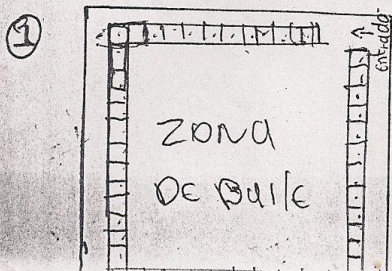 1
Entrada
ZONA
DE BAILE